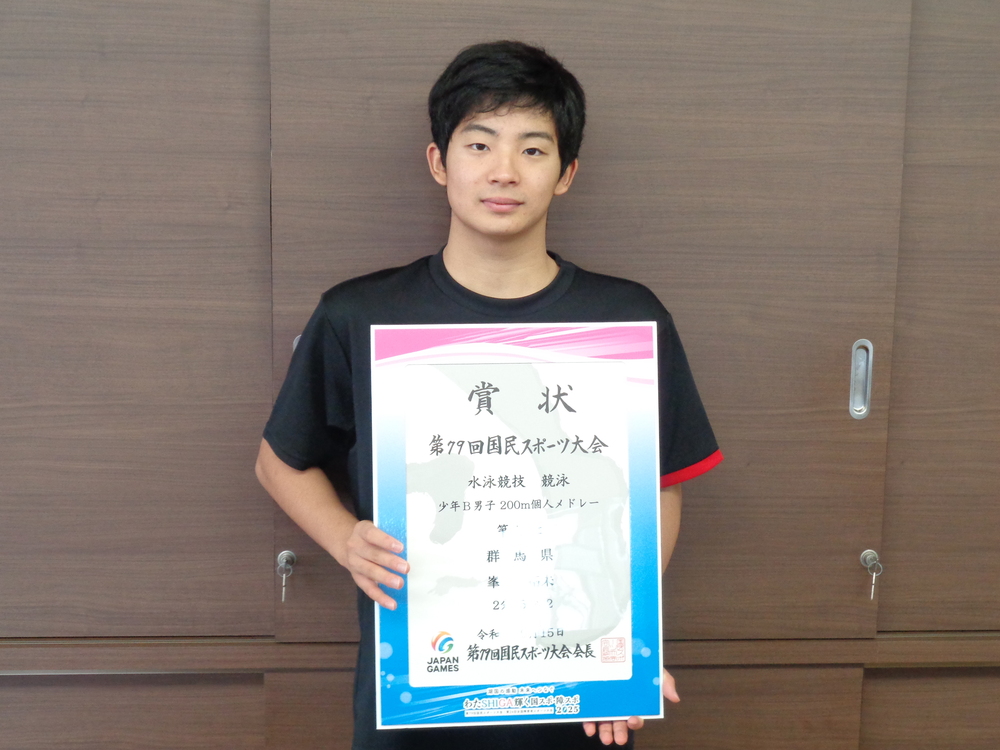 賞 状
第79回国民スポーツ大会
水泳競技 競泳
少年B男子 200m個人メドレー
第
群 馬 県
峯
令和 15日
第79回国民スポーツ大会会長
JAPAN
GAMES
わたSHIGA輝く国スポ・障スポ
2025